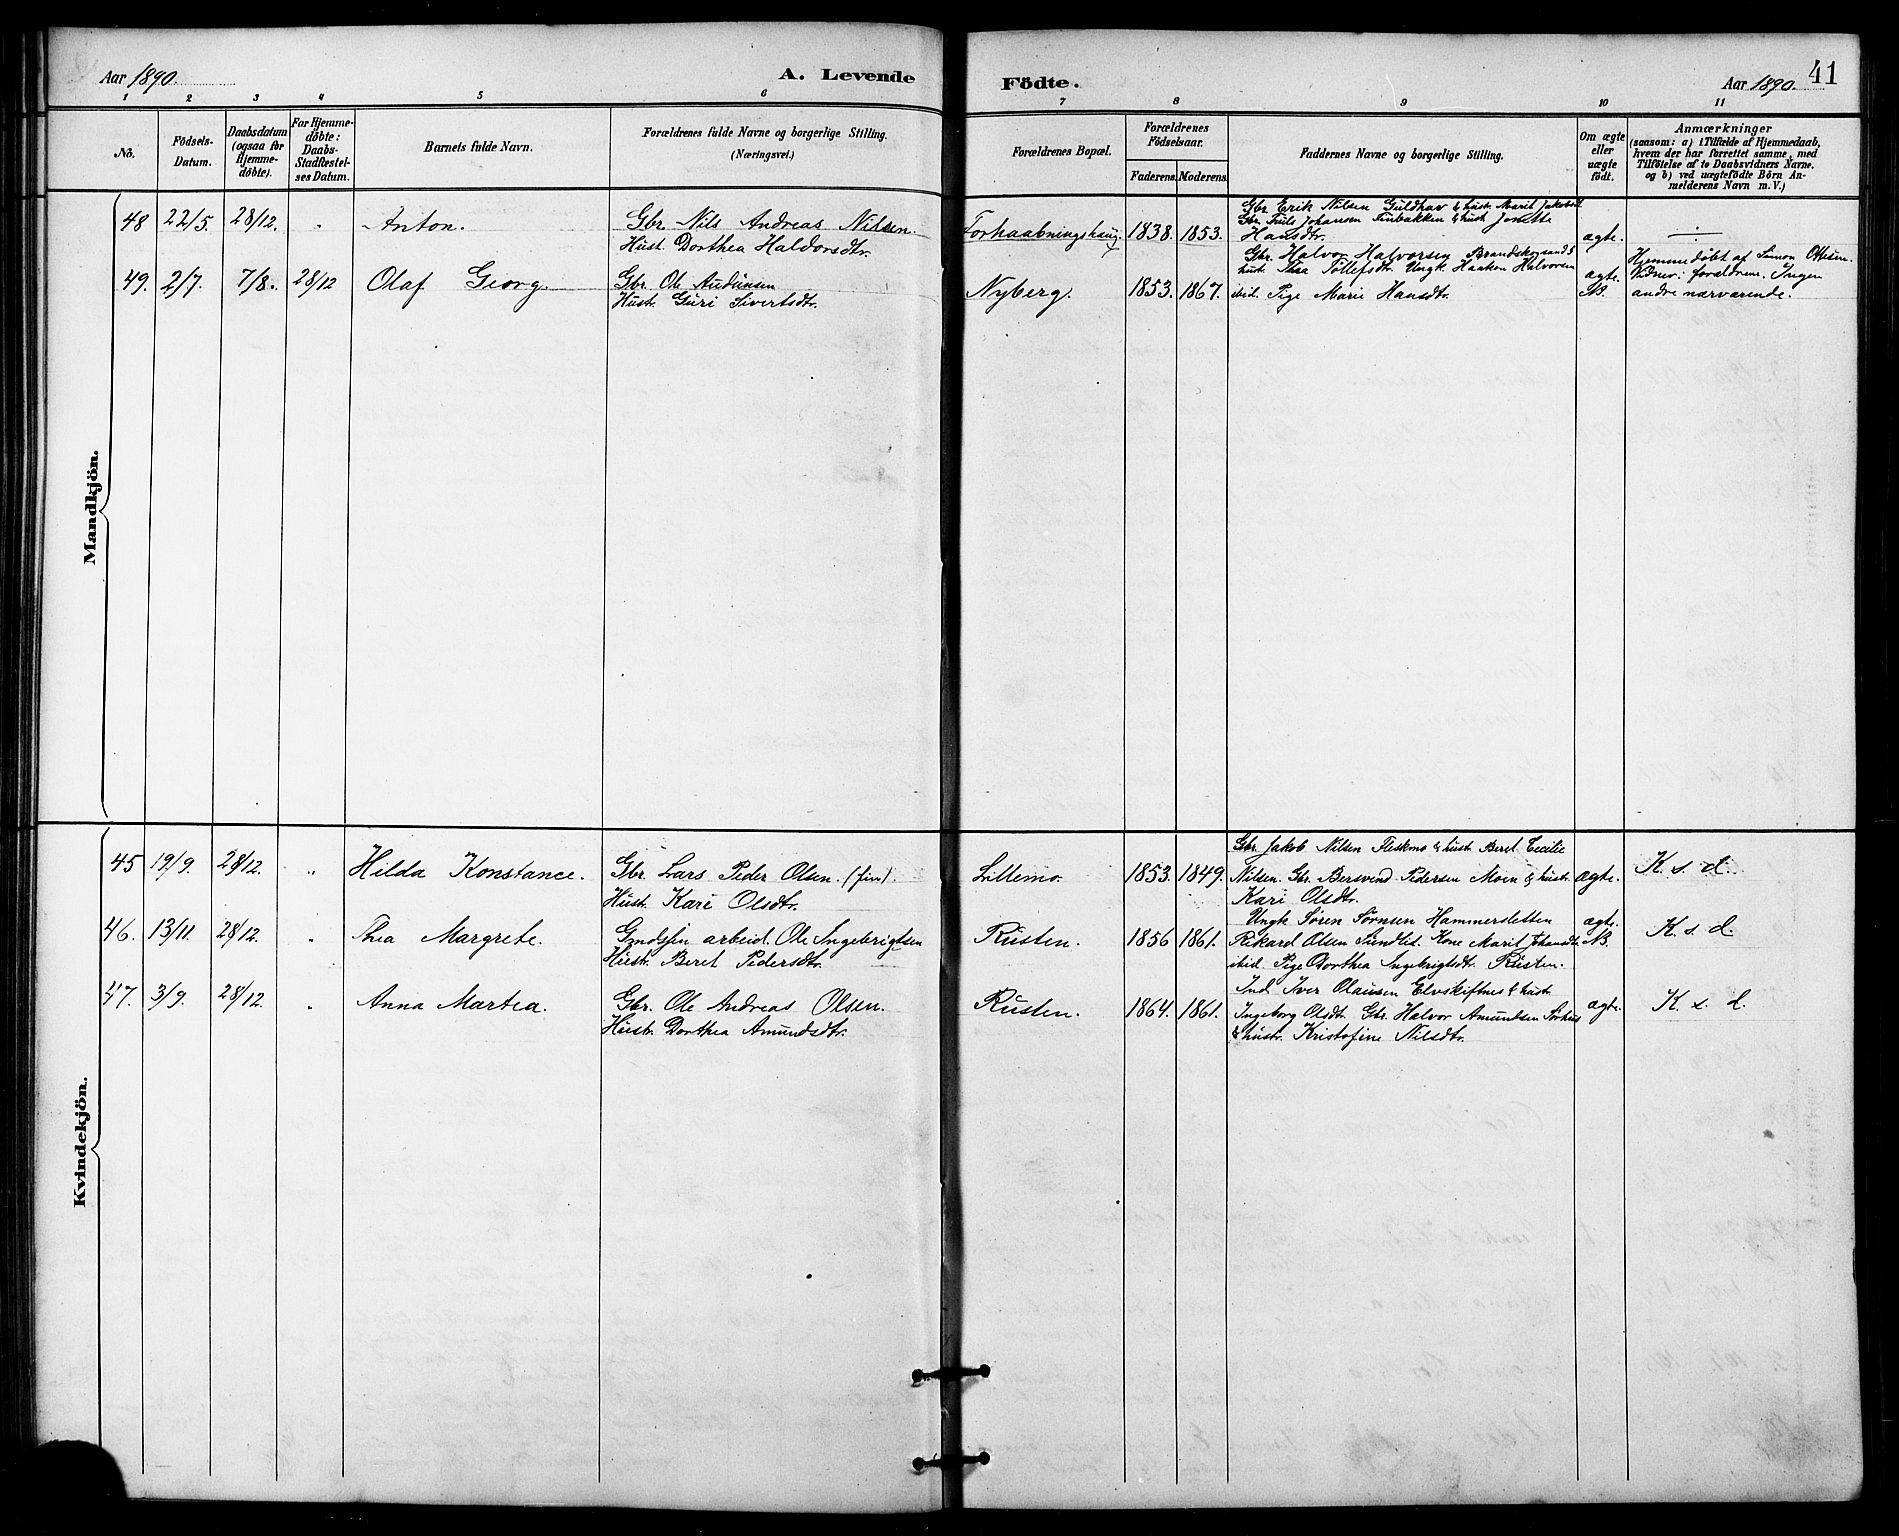 Aar 1890.
A. Levende
Födte.
Aar 1890.
41
1 2 3 4 5 6 7 8 9 10 11
No.
Födsels-
Datum.
Daabsdatum
(ogsaa for
Hjemme-
döbte).
For Hjemme-
döbte:
Daabs-
Stadfæstel-
ses Datum.
Barnets fulde Navn.
Forældrenes fulde Navne og borgerlige Stilling.
(Næringsvei.)
Forældrenes Bopæl.
Forældrenes
Födselsaar.
Faderens. Moderens.
Faddernes Navne og borgerlige Stilling.
Om ægte
eller
uægte
födt.
Anmærkninger
(saasom: a) i Tilfælde af Hjemmedaab,
hvem der har forrettet samme, med
Tilföielse af to Daabsvidners Navne.
og b) ved uægtefödte Börn An-
melderens Navn m. V.)
Mandkjön.
48 22/5. 28/12. " Anton. Gbr. Nils Andreas Nilsen.
Hust. Dorthea Haldorsdtr.
Forhaabningshaug. 1838. 1853.
Gbr. Erik Nilsen Guldhav & hust. Marit Jakobsd.
Gbr. Truls Johansen Finbakken & hust. Jonette
Hansdtr.
ægte. ÷
49. 2/7. 7/8. 28/12 Olaf Georg Gbr. Ole Audunsen
Hust. Guri Sivertsdtr.
Nyberg. 1853. 1867.
Gbr. Halvor Halvorsen Brandskognand &
hust. Thea Tollefsdtr. Ungk. Haaken Halvorsen
ibid. Pige Marie Hansdtr.
ægte.
NB.
Hjemmedöbt af Simon Ottesen.
Vidner: forældrene. Ingen
andre nærværende.
Kvindekjön.
45 19/9. 28/12. " Hilda Konstance. Gbr. Lars Peder Olsen. (fin).
Hust. Kari Olsdtr.
Lillemo. 1853. 1849.
Gbr. Jakob Nilsen Fleskmo & hust. Beret Cecilie
Nilsen. Gbr. Bersvend Pedersen Moen & hustr.
Kari Olsdtr.
ægte. K. s. d.
46. 13/11. 28/12. " Thea Margrete. Grndsfin arbeid. Ole Ingebrigtsen
Hust. Beret Pedersdtr.
Rusten. 1856 1861.
Ungk. Søren Sørnsen Hammersletten
Rikard Olsen Sundlid. Kone Marit Johansdtr.
ibid. Pige Dorthea Ingebrigtsdtr. Rusten.
ægte.
NB.
K. s. d.
47. 3/9. 28/12. " Anna Martea. Gbr. Ole Andreas Olsen.
Hust. Dorthea Amundsdtr.
Rusten. 1864. 1861.
Ind. Iver Olausen Elvskiftnes & hust.
Ingeborg Olsdtr. Gbr. Halvor Amundsen Sørhus
& hustr. Kristofine Nilsdtr.
ægte. K. s. d.